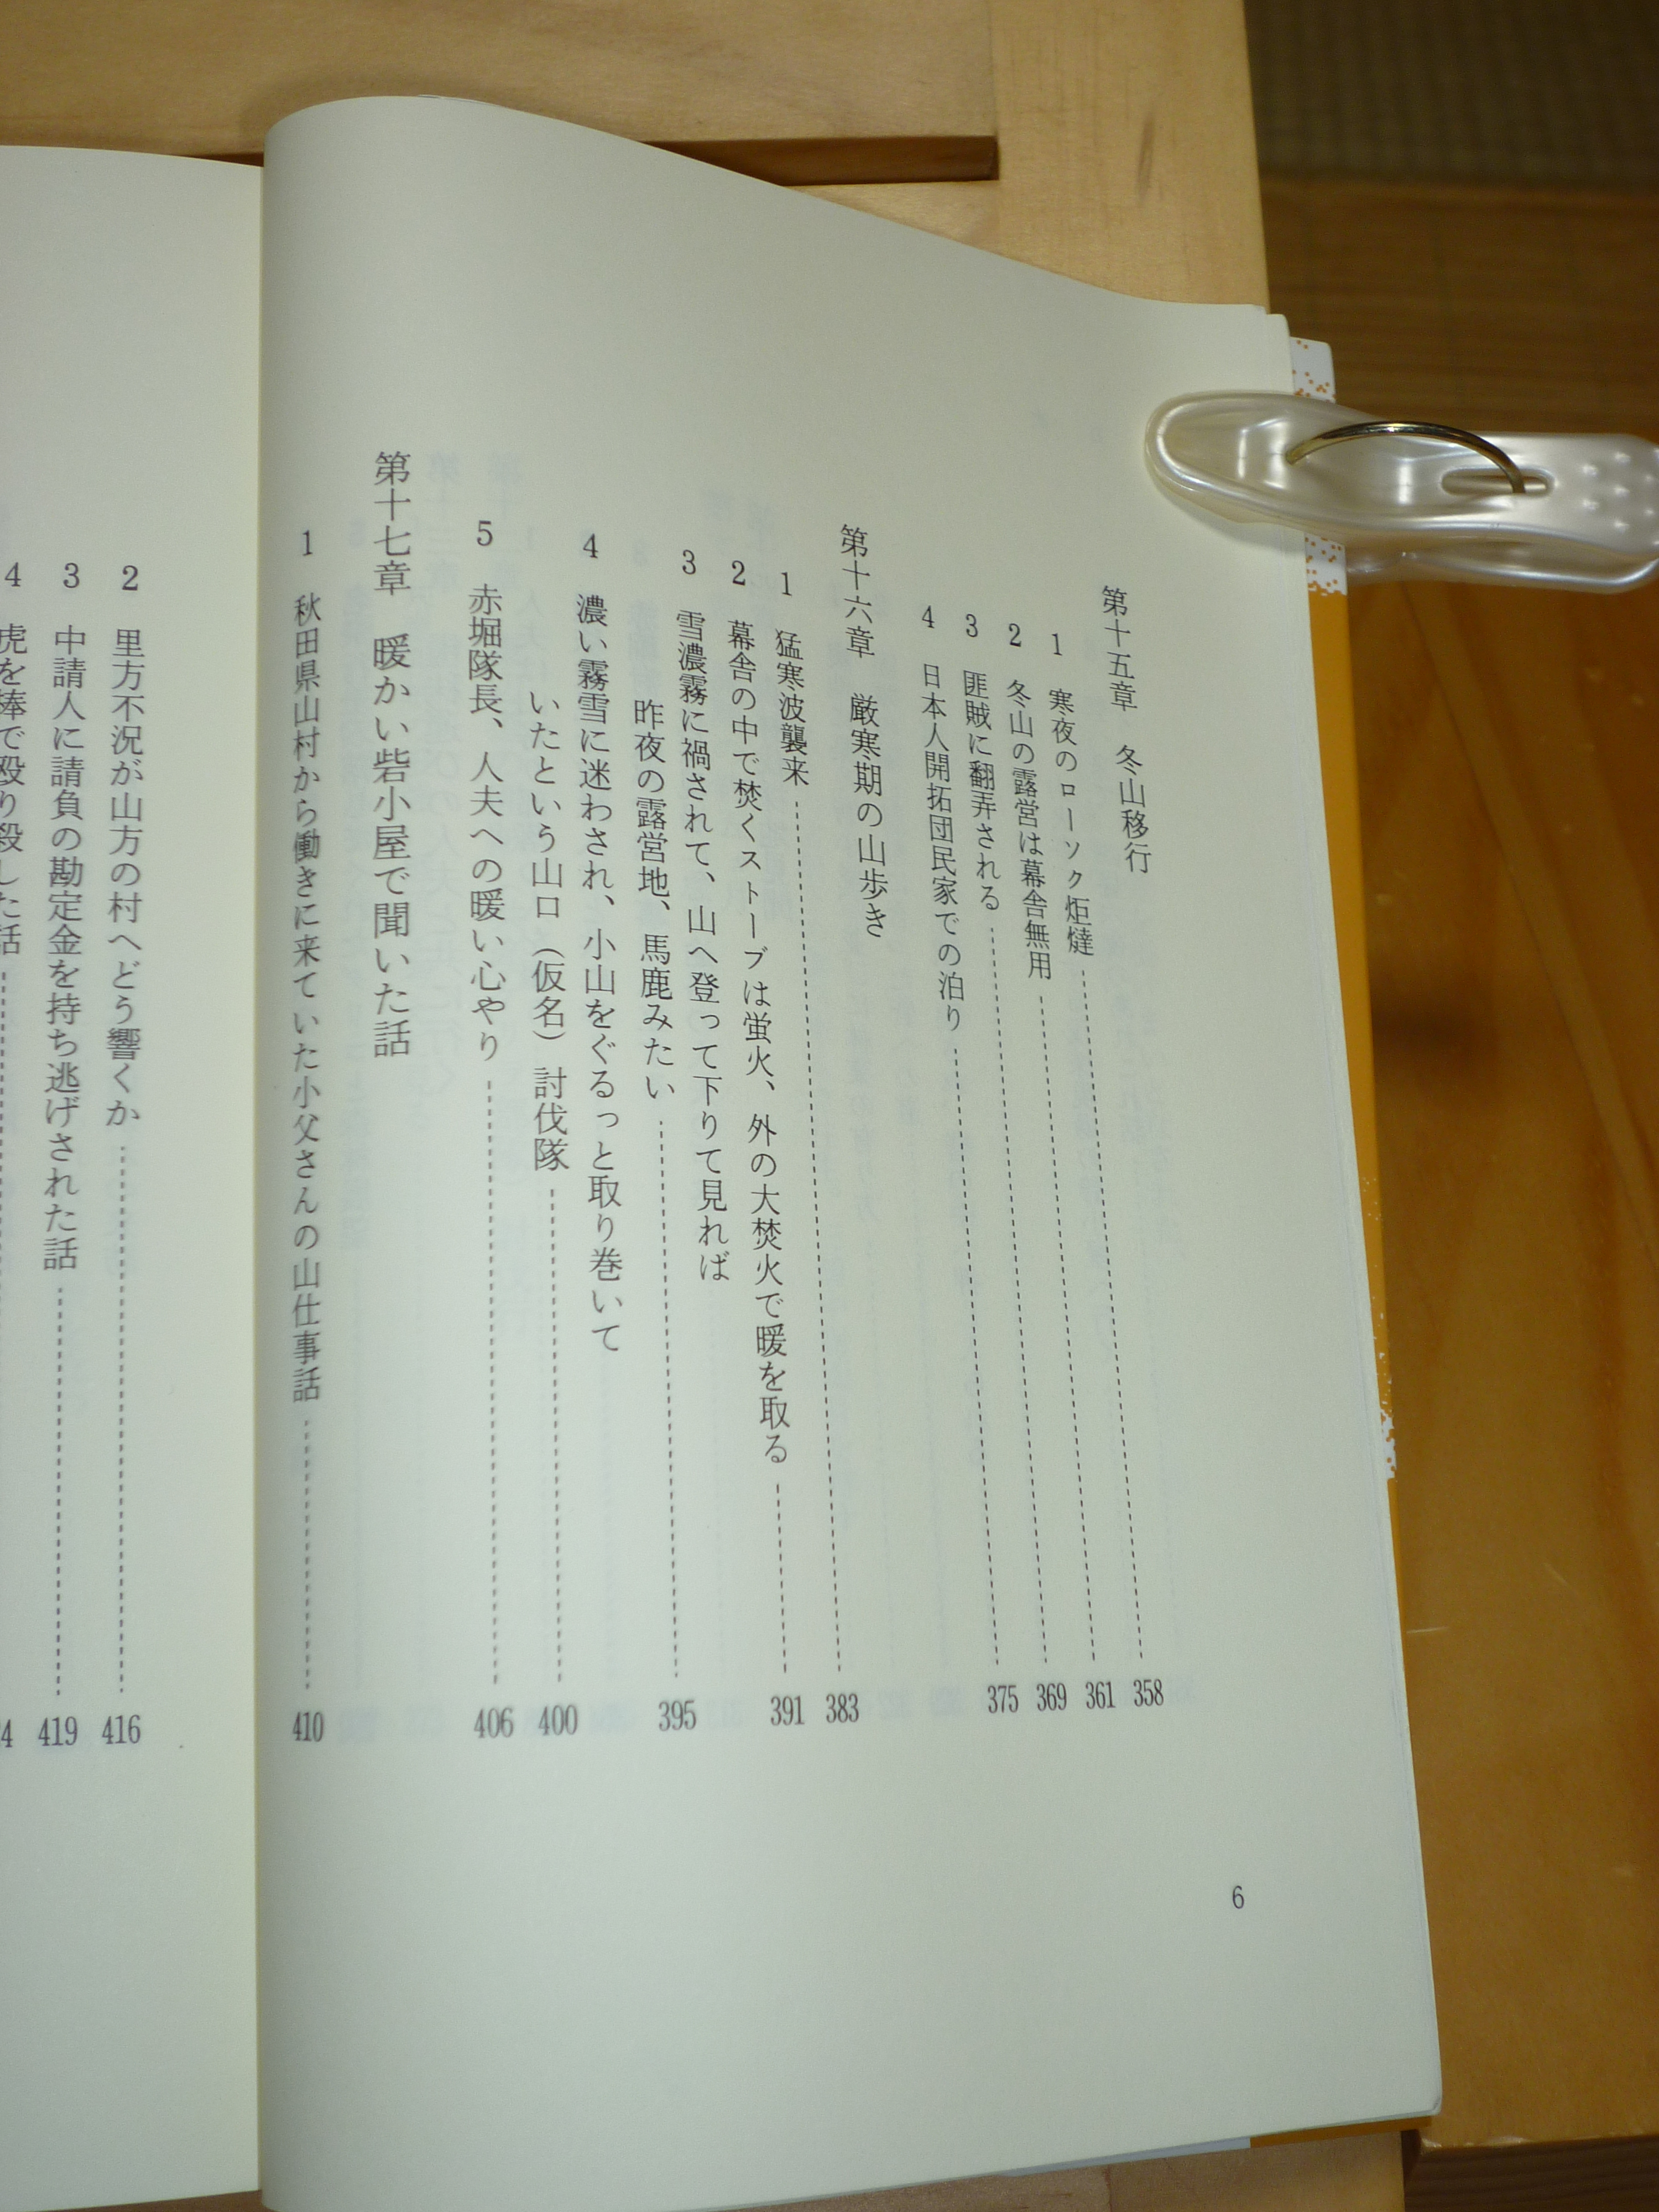 第十五章　冬山移行
1　寒夜のローソク炬燵 358
2　冬山の露営は幕舎無用 361
3　匪賊に翻弄される 369
4　日本人開拓団民家での泊り 375
第十六章　厳寒期の山歩き
1　猛寒波襲来 383
2　幕舎の中で焚くストーブは蛍火、外の大焚火で暖を取る 391
3　雪濃霧に禍されて、山へ登って下りて見れば
昨夜の露営地、馬鹿みたい 395
4　濃い霧雪に迷わされ、小山をぐるっと取り巻いて
いたという山口（仮名）討伐隊 400
5　赤堀隊長、人夫への暖い心やり 406
第十七章　暖かい砦小屋で聞いた話
1　秋田県山村から働きに来ていた小父さんの山仕事話 410
6
2　里方不況が山方の村へどう響くか 416
3　中請人に請負の勘定金を持ち逃げされた話 419
4　虎を棒で殴り殺した話